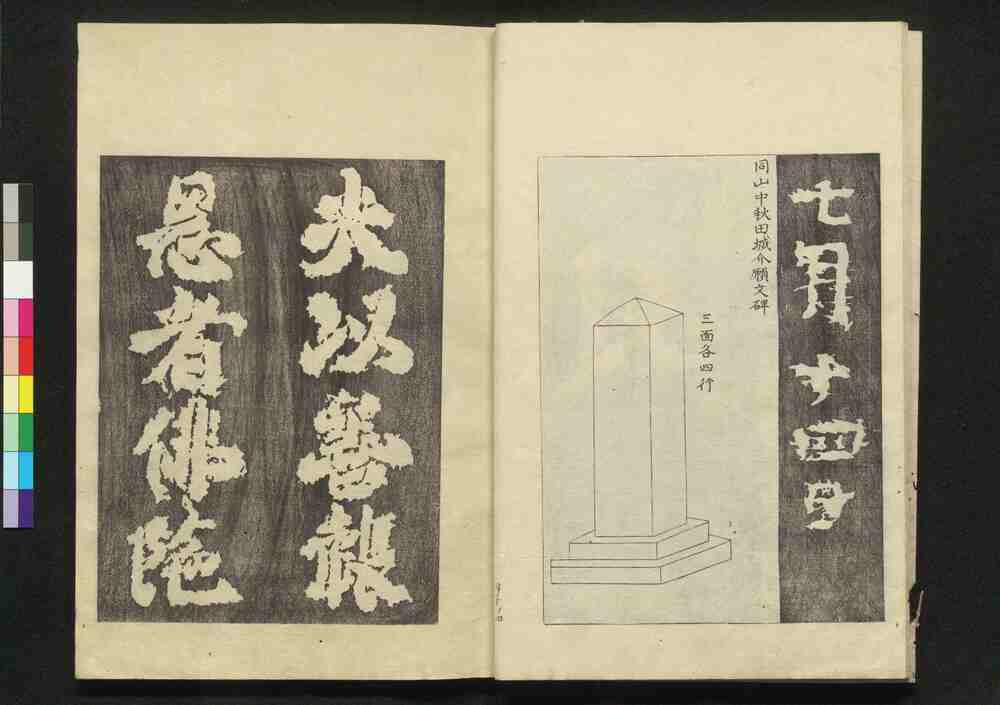 七月十四日
同山中秋田城介願文碑
三面各四行
夫以善報
恩者佛陀